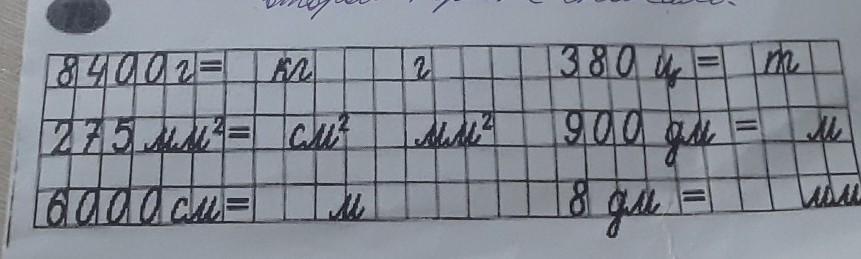 8400г= кг г 380 ц = т
275 мм²= см² мм² 900 дм = м
6000см= м 8 дм = мм